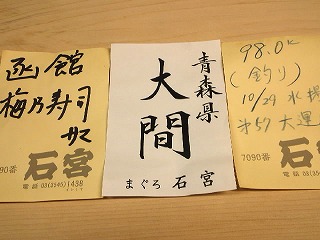 函館
梅乃寿司
サマ
7090番
石宮
電話 03(3545)1438
青森県
大間
まぐろ 石宮
98.0K
(釣り)
10/29 水揚
第57大運
7090番
石宮
電話